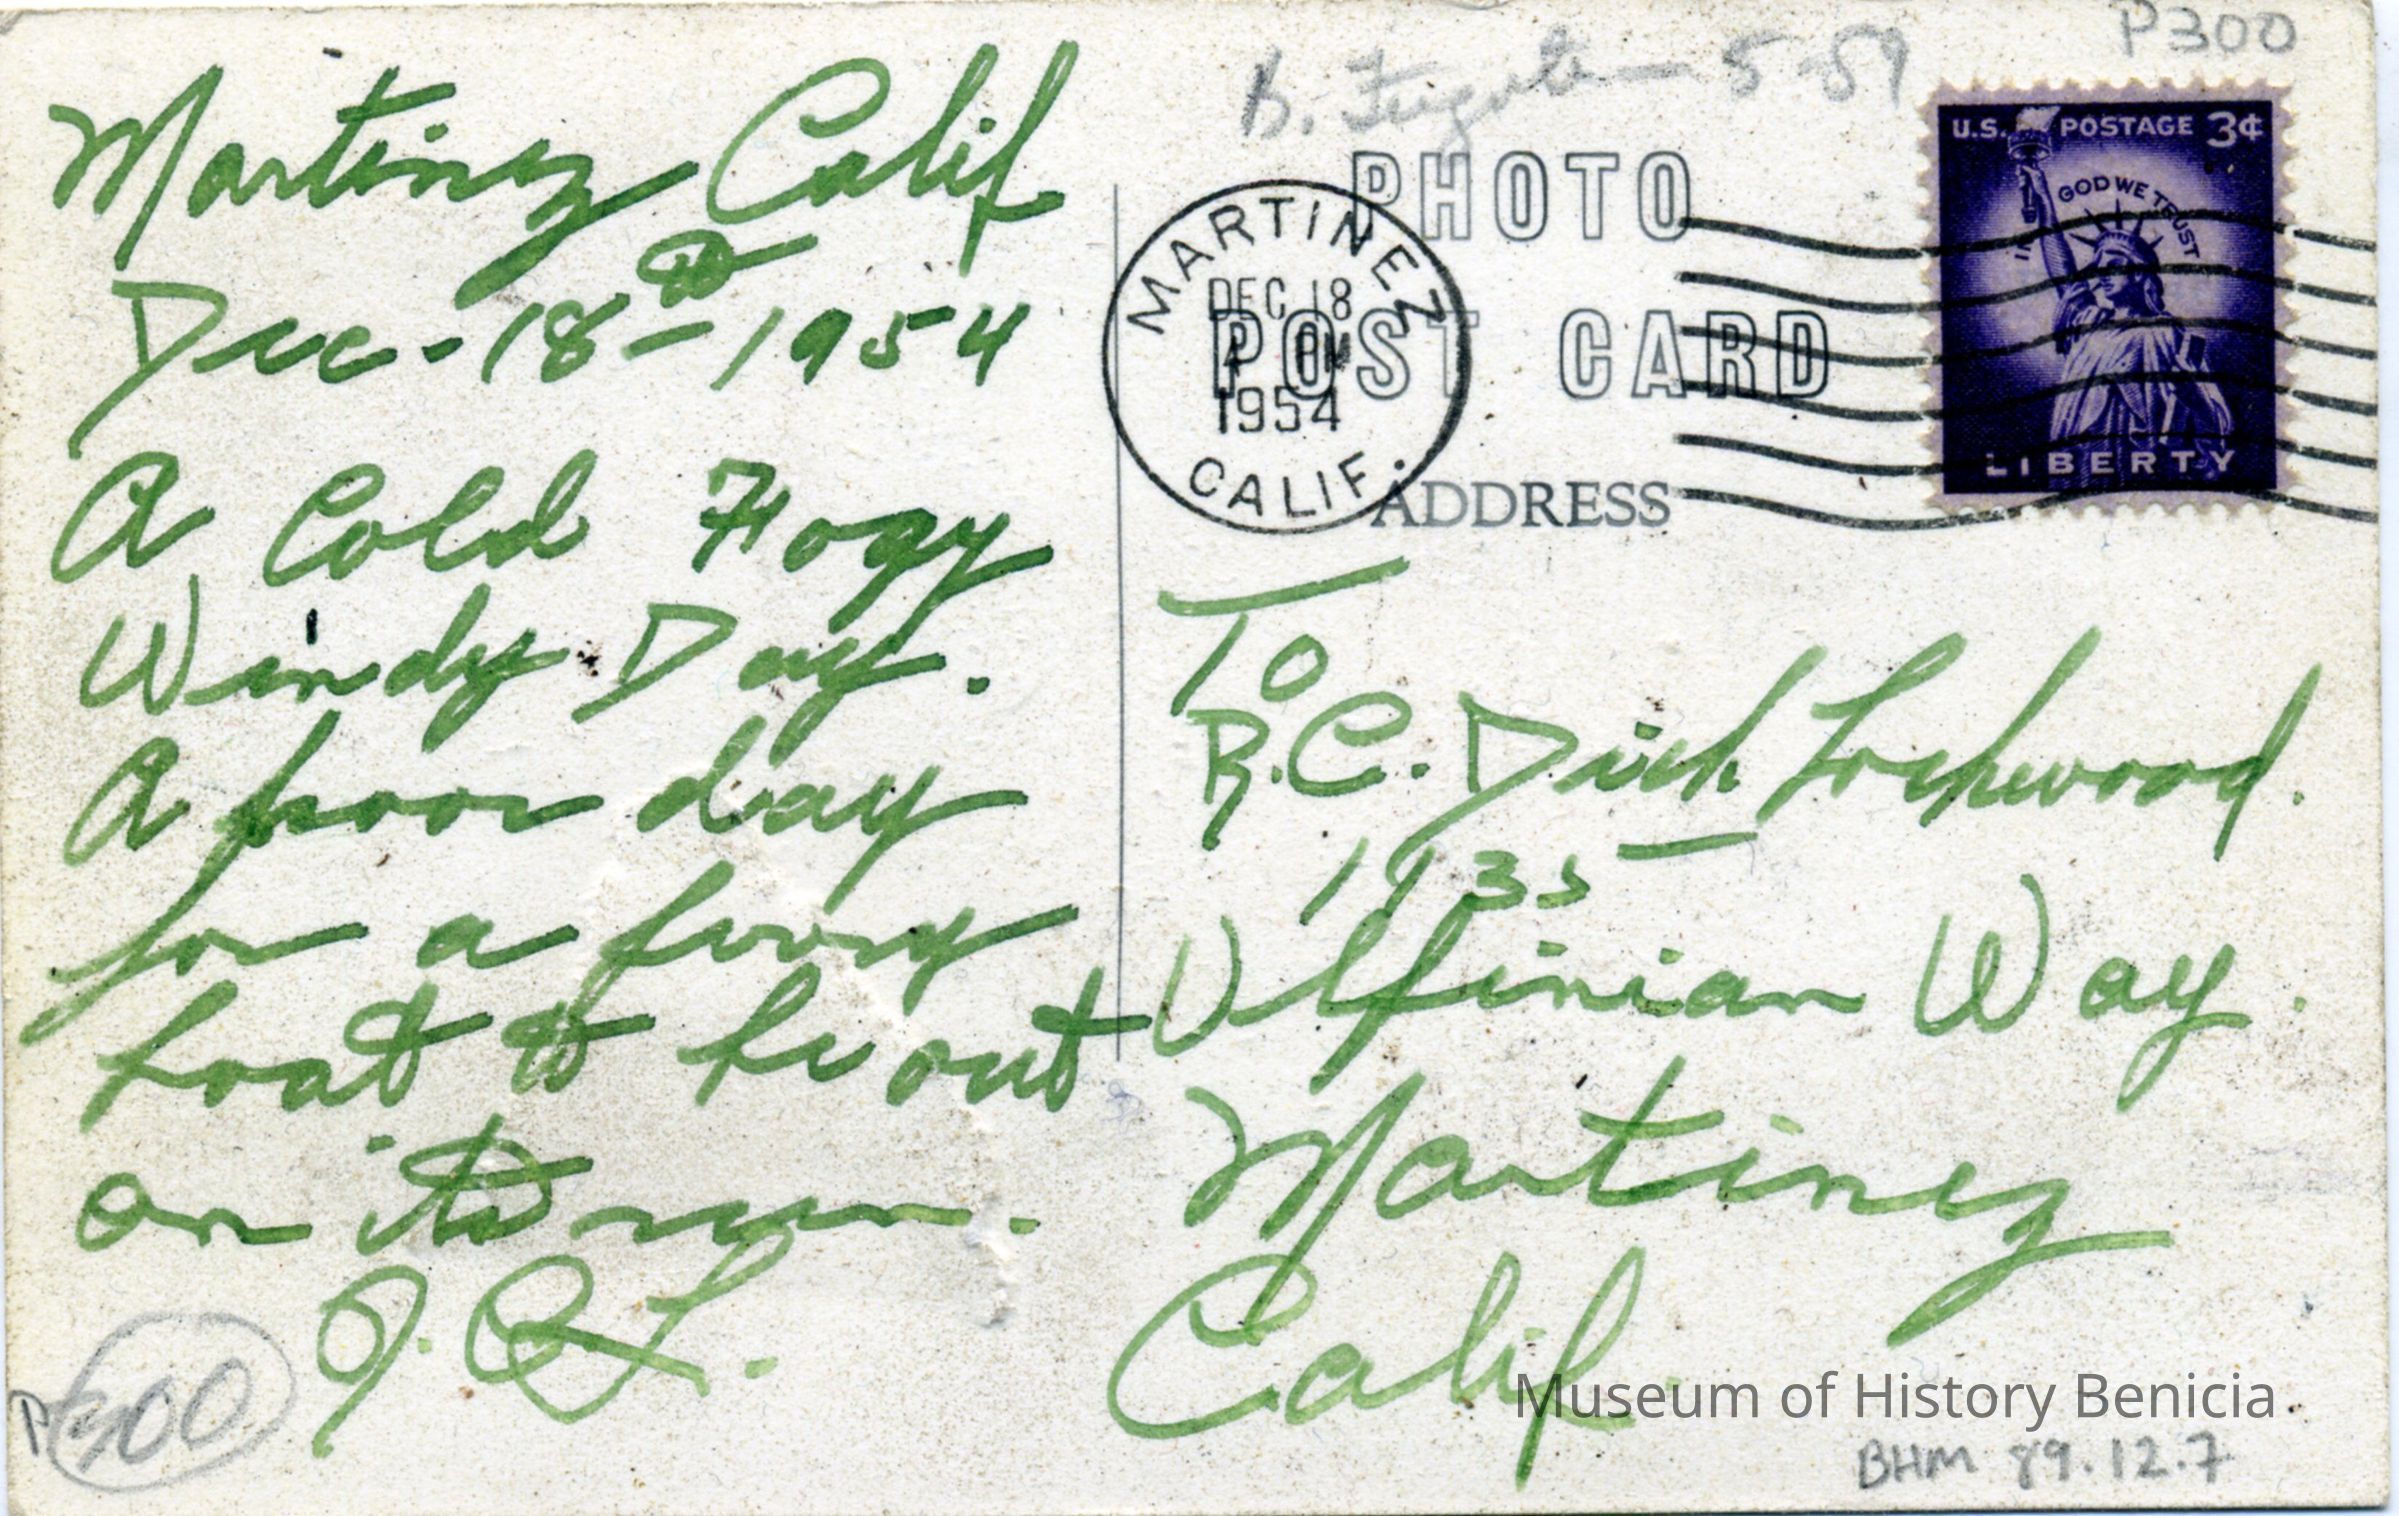 P300
B. Fugate — 5-89
U.S. POSTAGE 3¢
IN GOD WE TRUST
LIBERTY
PHOTO
POST CARD
ADDRESS
MARTINEZ
DEC 18
PM
1954
CALIF.
Martinez Calif.
Dec-18th-1954
A Cold Fogy
Windy Day.
A poor day
for a ferry
boat to be out
on it run.
To
R.C. Dick Lockwood.
1135
Ulfinian Way.
Martinez
Calif.
P300
Museum of History Benicia
BHM 89.12.7